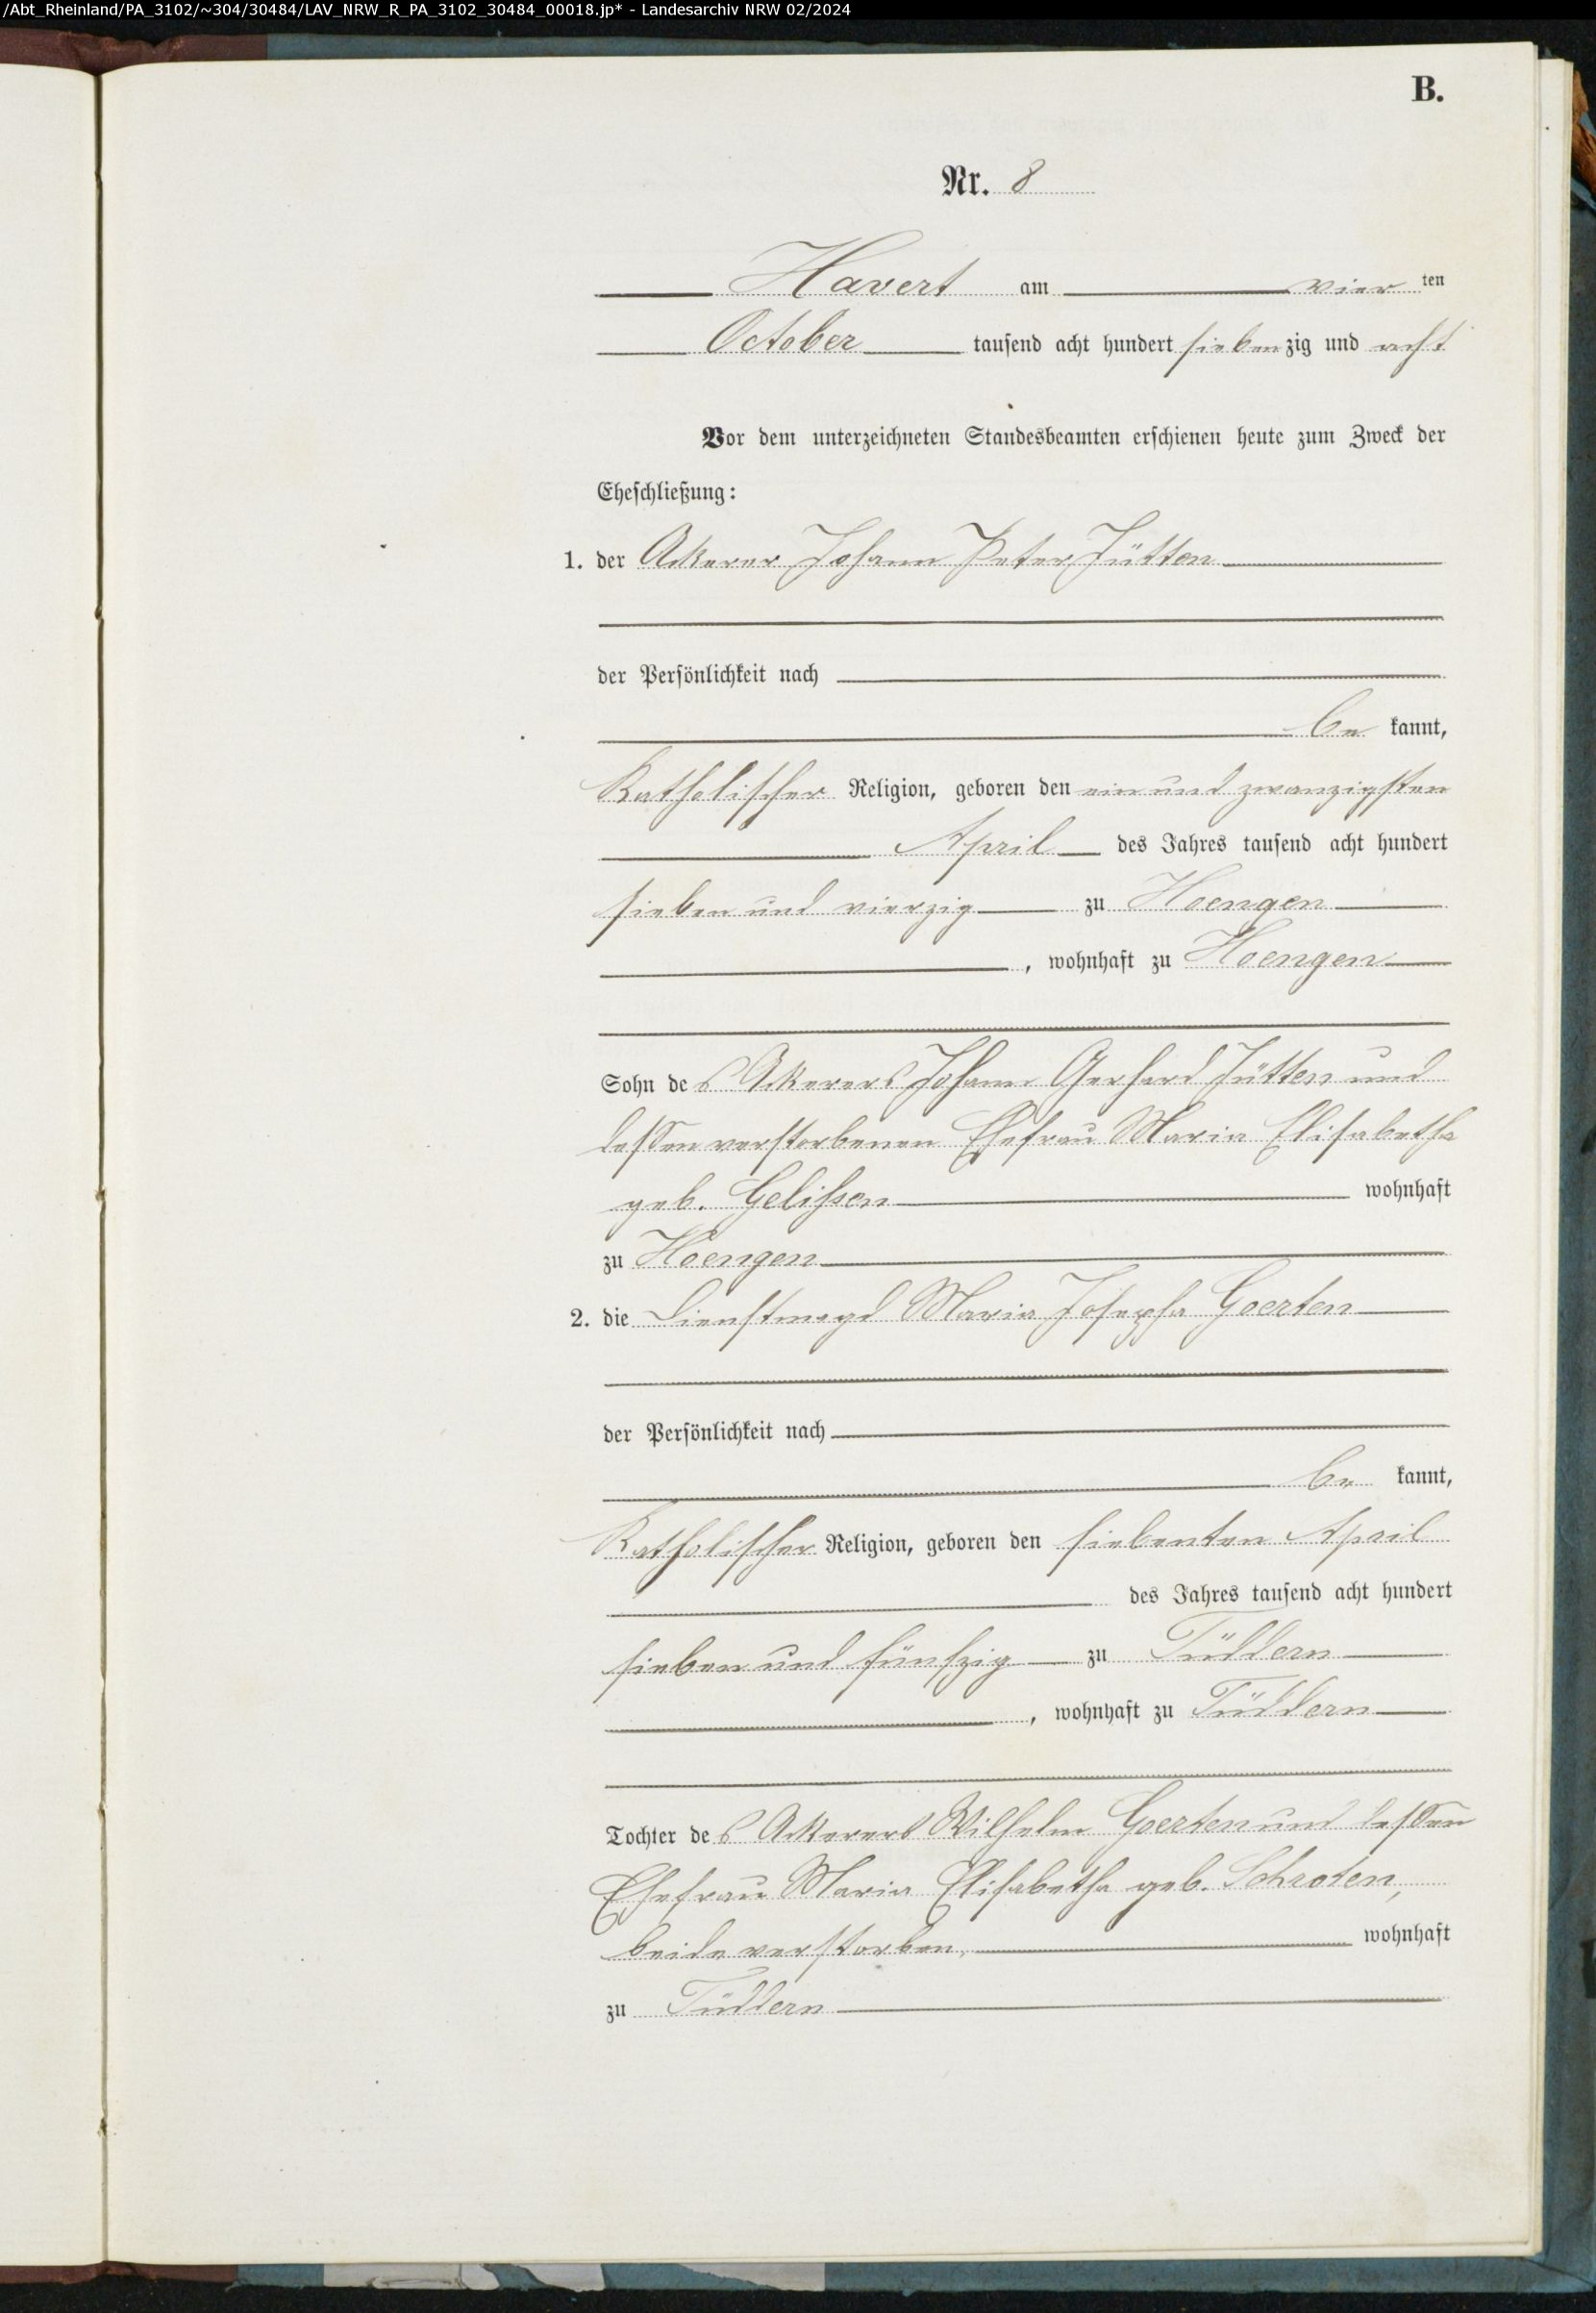 /Abt_Rheinland/PA_3102/~304/30484/LAV_NRW_R_PA_3102_30484_00018.jp* - Landesarchiv NRW 02/2024
B.
Nr. 8
Havert am vier ten
October tausend acht hundert siebenzig und acht
Vor dem unterzeichneten Standesbeamten erschienen heute zum Zweck der
Eheschließung:
1. der Ackerer Johann Peter Jütten
der Persönlichkeit nach
be kannt,
Katholischer Religion, geboren den ein und zwanzigsten
April des Jahres tausend acht hundert
sieben und vierzig zu Hoengen
, wohnhaft zu Hoengen
Sohn des Ackerers Johann Gerhard Jütten und
dessen verstorbenen Ehefrau Maria Elisabetha
geb. Gelißen wohnhaft
zu Hoengen
2. die Dienstmagd Maria Josepha Goerten
der Persönlichkeit nach
be kannt,
Katholischer Religion, geboren den siebenten April
des Jahres tausend acht hundert
sieben und fünfzig zu Tüddern
, wohnhaft zu Tüddern
Tochter des Ackerers Wilhelm Goerten und dessen
Ehefrau Maria Elisabetha geb. Schroten,
beide verstorben, wohnhaft
zu Tüddern